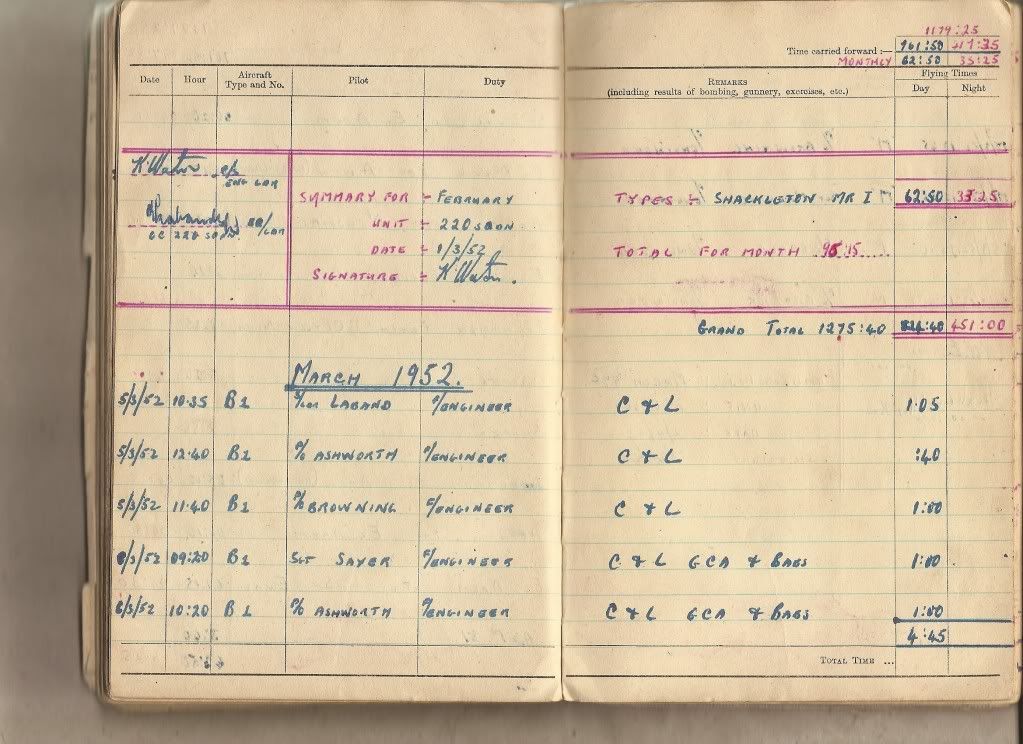 1179:25
Time carried forward :— 761:50 417:35
MONTHLY 62:50 33:25
Date Hour Aircraft Type and No. Pilot Duty REMARKS (including results of bombing, gunnery, exercises, etc.) Flying Times Day Night
K Water
ENG LDR
SUMMARY FOR :- FEBRUARY TYPES :- SHACKLETON MR I 62:50 33:25
UNIT :- 220 SQDN
OC 220 SQDN
DATE :- 1/3/52 TOTAL FOR MONTH 96:15
SIGNATURE :- K Water.
GRAND TOTAL 1275:40 451:00
MARCH 1952.
5/3/52 10.35 B1 LABAND F/ENGINEER C & L 1.05
5/3/52 12.40 B1 ASHWORTH F/ENGINEER C & L :40
5/3/52 11.40 B1 BROWNING F/ENGINEER C & L 1:00
6/3/52 09:20 B1 SGT SAYER F/ENGINEER C & L GCA & BABS 1:00
6/3/52 10:20 B1 ASHWORTH F/ENGINEER C & L GCA & BABS 1:00
4:45
TOTAL TIME ...